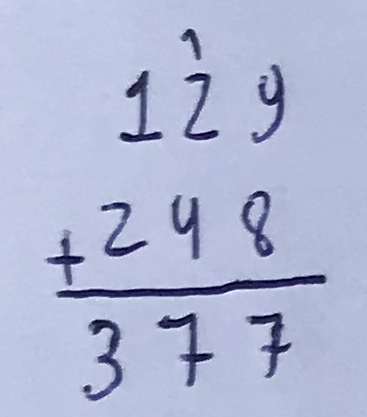 1
129
+248
377